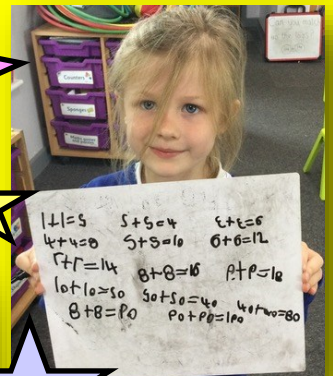 Counters
Sponges
1+1=2 2+2=4 3+3=6
4+4=8 5+5=10 6+6=12
7+7=14 8+8=16 9+9=18
10+10=20 20+20=40 40+40=80
8+8=